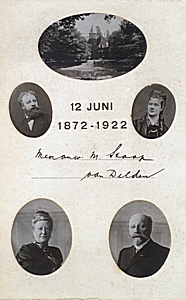 12 JUNI
1872-1922
Mevrouw M. Stoop
van Delden